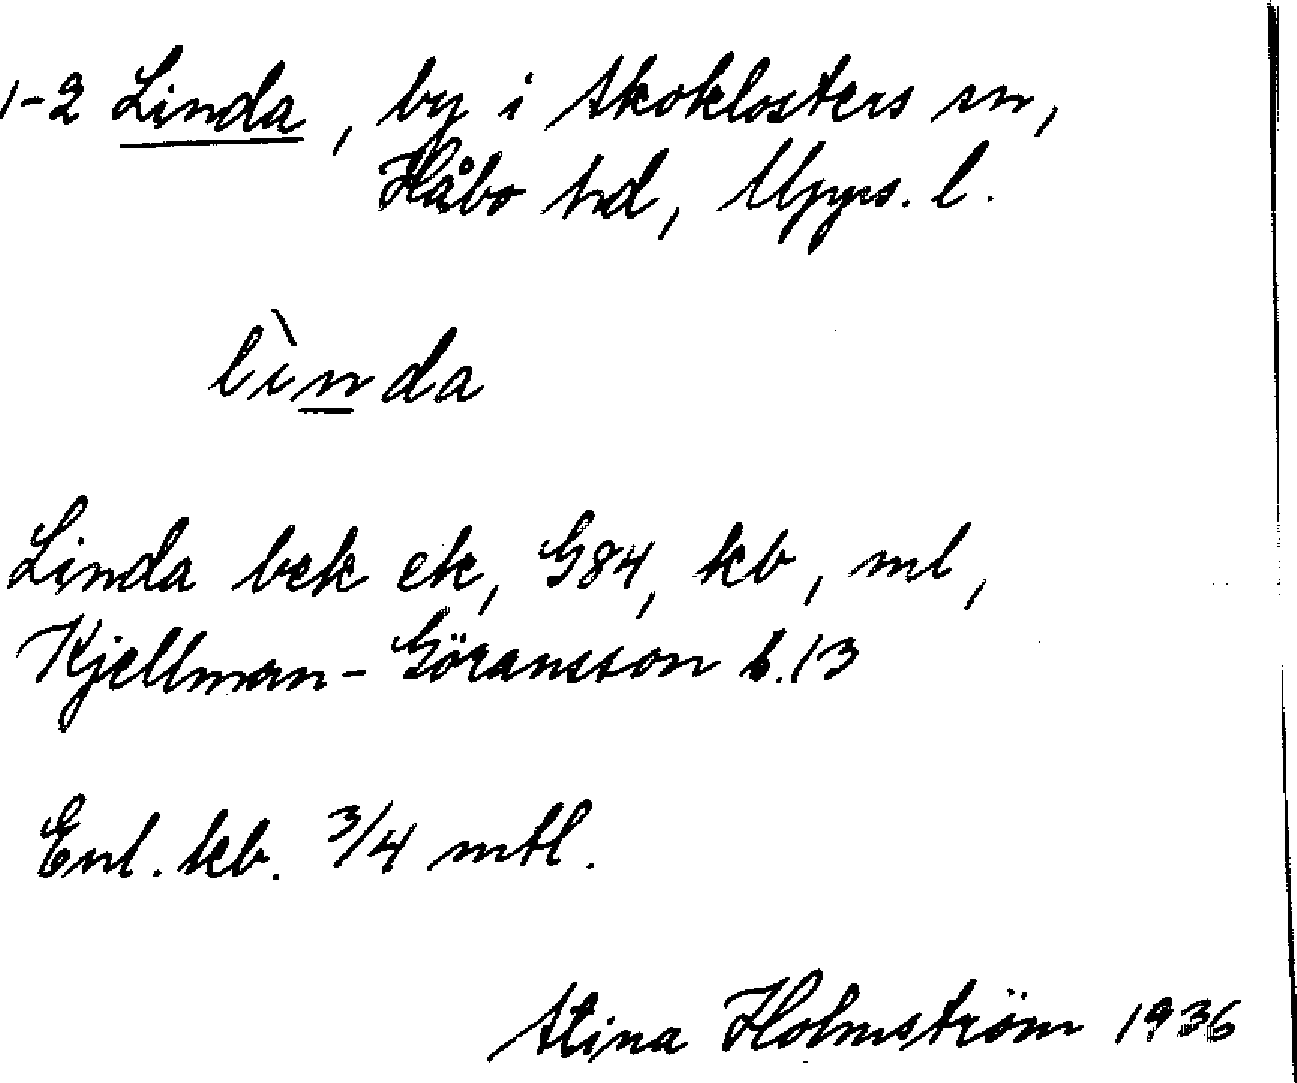 1-2 Linda, by i Skoklosters sn,
Håbo hd, Upps. l.
lìnda
Linda bek ek, G84, kb, ml,
Kjellman-Göransson b.13
Enl. kb. 3/4 mtl.
Stina Holmström 1936